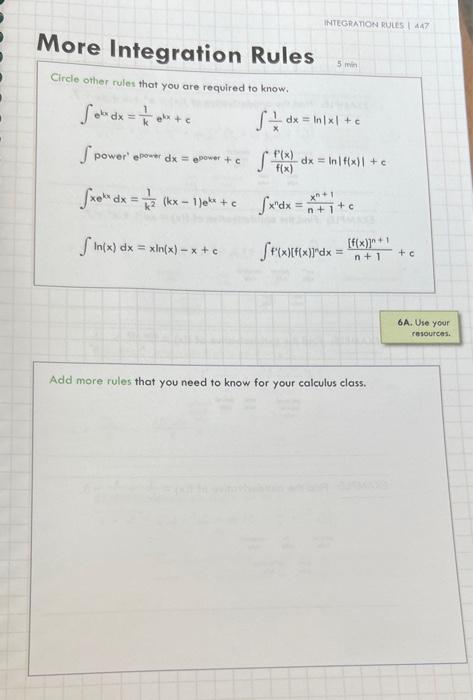 INTEGRATION RULES | 447
More Integration Rules
5 min
Circle other rules that you are required to know.
∫e^{kx} dx = 1/k e^{kx} + c
∫ 1/x dx = ln|x| + c
∫ power' e^{power} dx = e^{power} + c
∫ f'(x)/f(x) dx = ln|f(x)| + c
∫xe^{kx} dx = 1/k² (kx – 1)e^{kx} + c
∫xⁿdx = x^{n + 1}/n + 1 + c
∫ ln(x) dx = xln(x) – x + c
∫f'(x)[f(x)]ⁿdx = [f(x)]^{n + 1}/n + 1 + c
6A. Use your
resources.
Add more rules that you need to know for your calculus class.